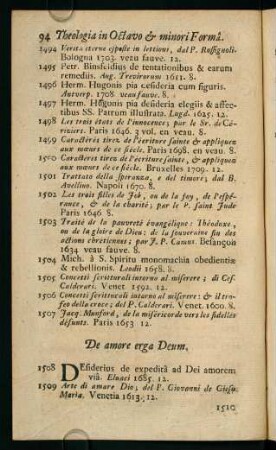 94 Theologia in Octavo & minori Formâ.
1494 Verità eterne esposte in lettioni, dal P. Rossignoli.
Bologna 1703. veau fauve. 12.
1495 Petr. Binsfeldius de tentationibus & earum
remediis. Aug. Trevirorum 1611. 8.
1496 Herm. Hugonis pia desideria cum figuris.
Antverp. 1708 veau fauve. 8.
1497 Herm. Hugonis pia desideria elegiis & affec-
tibus SS. Patrum illustrata. Lugd. 1625. 12.
1498 Les trois états de l'innocence; par le Sr. de Cé-
riziers. Paris 1646. 3 vol. en veau. 8.
1499 Caractères tirez de l'écriture sainte & appliquez
aux mœurs de ce siécle. Paris 1698. en veau. 8.
1500 Caractères tirez de l'écriture sainte, & appliquez
aux mœurs de ce siécle. Bruxelles 1709. 12.
1501 Trattato della speranza, e del timore; dal B.
Avellino. Napoli 1670. 8.
1502 Les trois filles de Job, ou de la foy, de l'espé-
rance, & de la charité; par le P. saint Jude
Paris 1646 8.
1503 Traité de la pauvreté évangélique: Théodoxe,
ou de la gloire de Dieu; de la souveraine fin des
actions chretiennes; par J. P. Camus. Besançon
1634 veau fauve. 8.
1504 Mich. à S. Spiritu monomachia obedientiæ
& rebellionis. Leodi 1658. 8.
1505 Concetti scritturali intorno al miserere; di Ces.
Calderari. Venet 1592. 12.
1506 Concetti scritturali intorno al miserere: & il tro-
feo della croce; del P. Calderari. Venet. 1600. 8.
1507 Jacq. Munford, de la miséricorde vers les fidelles
défunts. Paris 1653 12.
De amore erga Deum.
1508 DEsiderius de expeditâ ad Dei amorem
viâ. Elnaci 1685. 12.
1509 Arte di amare Dio; del P. Giovanni de Giesu
Maria. Venetia 1613. 12.
1510